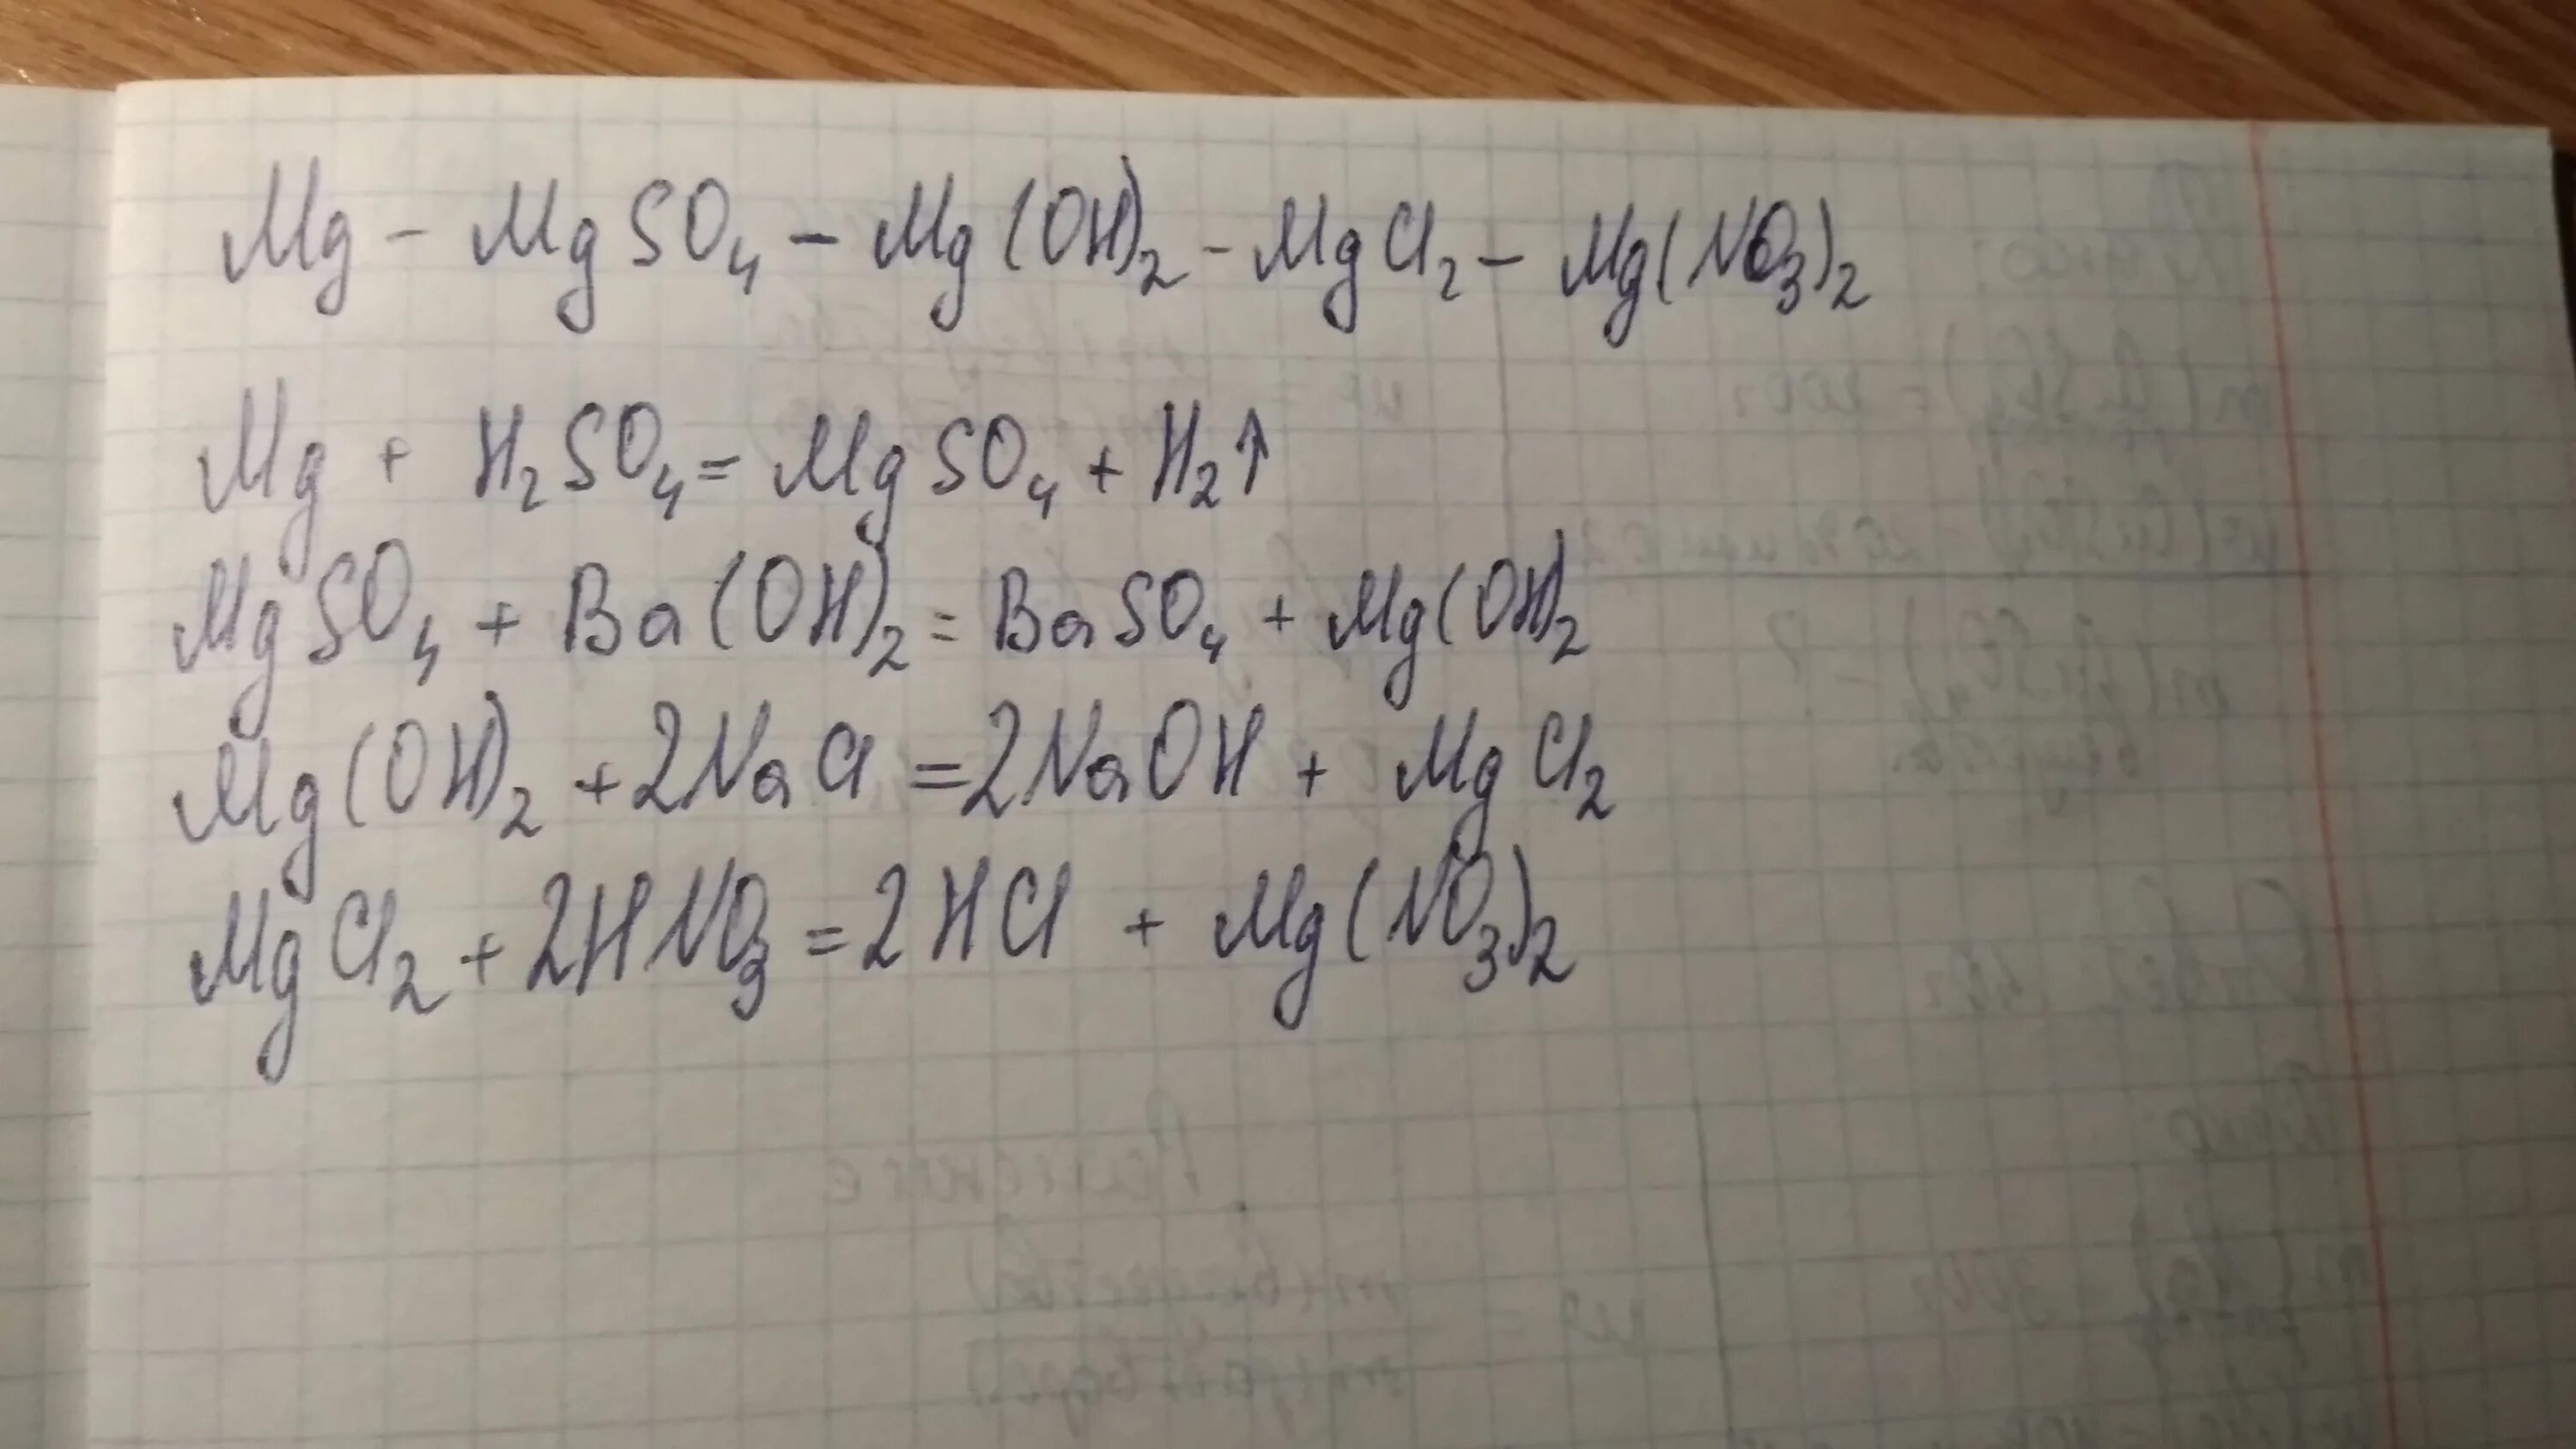 Mg - MgSO₄ - Mg(OH)₂ - MgCl₂ - Mg(NO₃)₂
Mg + H₂SO₄ = MgSO₄ + H₂↑
MgSO₄ + Ba(OH)₂ = BaSO₄ + Mg(OH)₂
Mg(OH)₂ + 2NaCl = 2NaOH + MgCl₂
MgCl₂ + 2HNO₃ = 2HCl + Mg(NO₃)₂